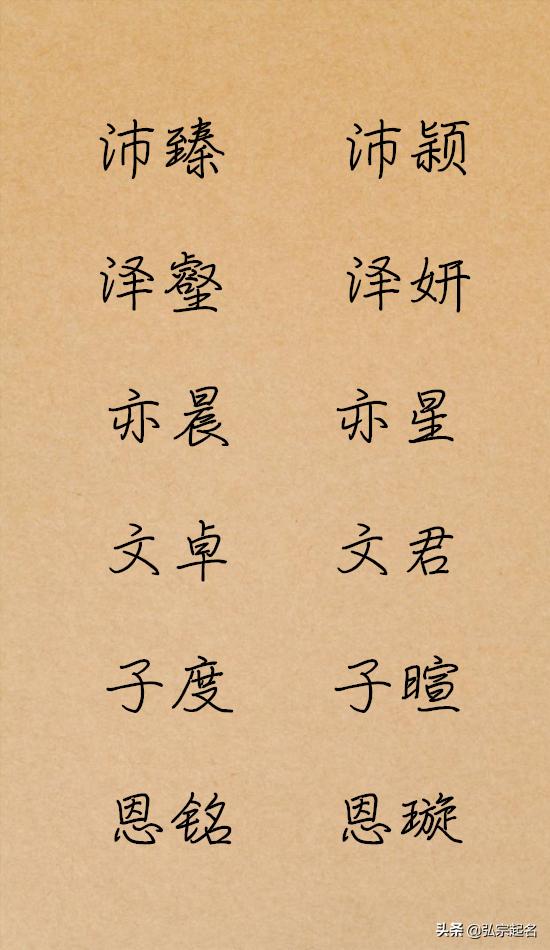 沛臻 沛颖
泽壑 泽妍
亦晨 亦星
文卓 文君
子度 子暄
恩铭 恩璇
头条 @弘宗起名